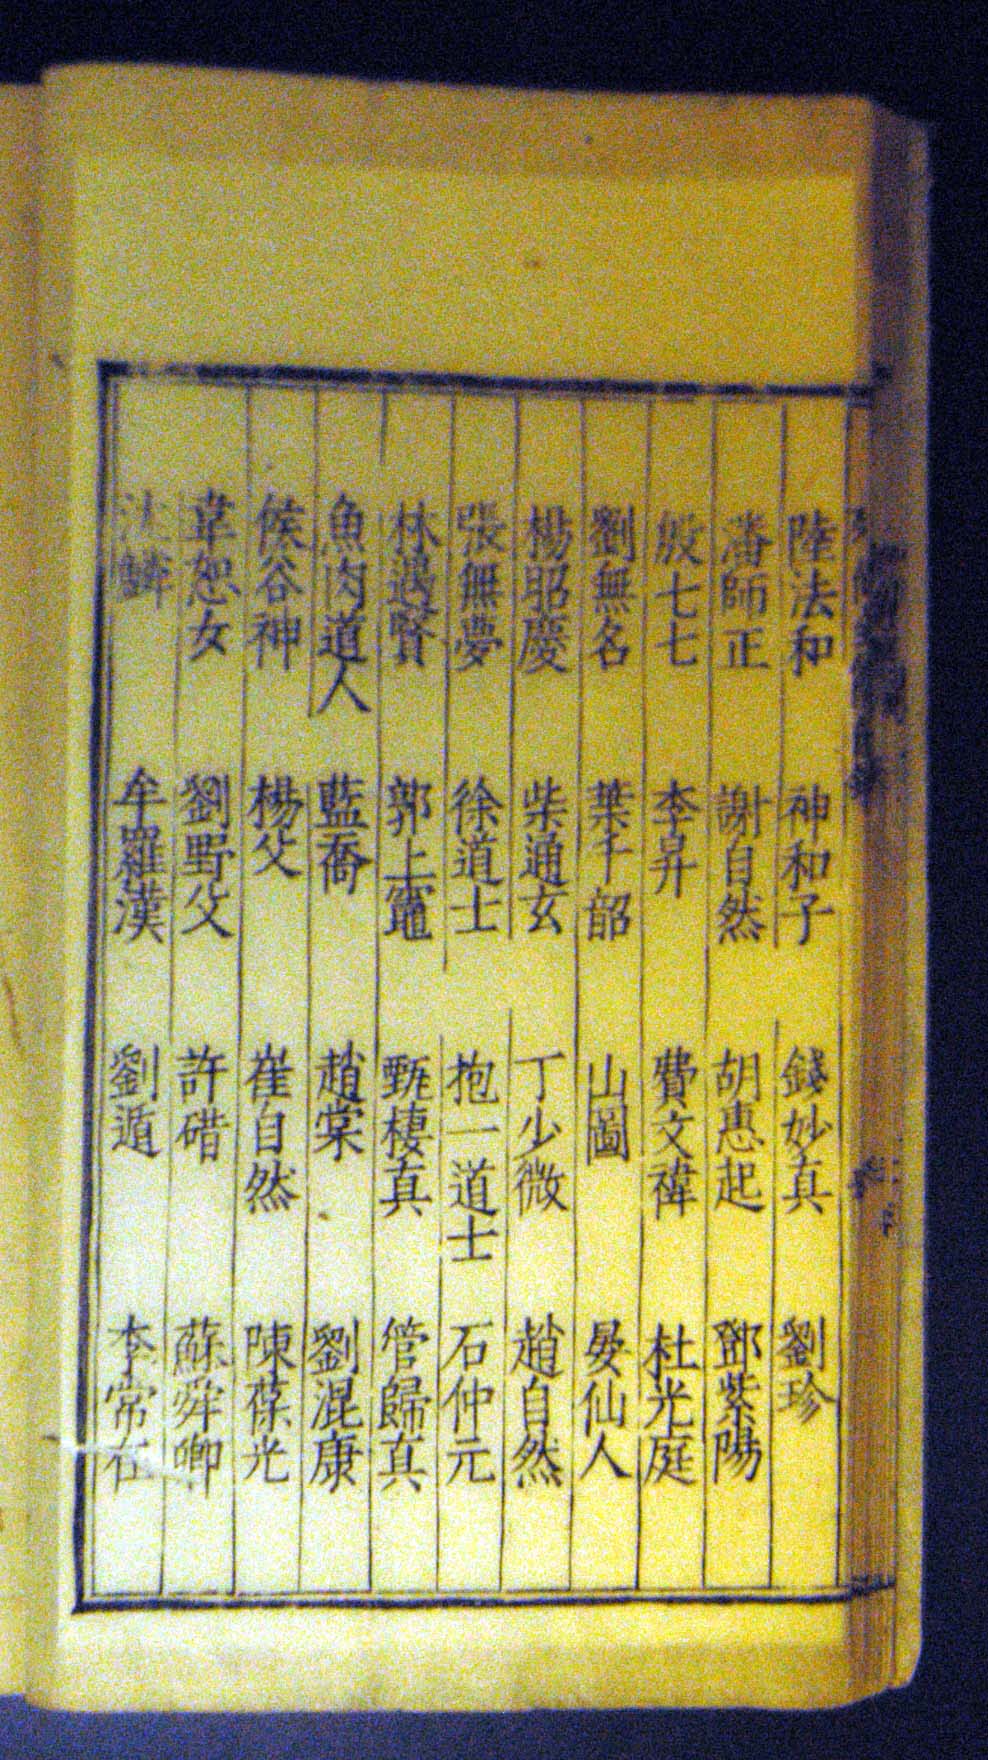 陸法和 神和子 錢妙真 劉珍
潘師正 謝自然 胡惠起 鄧紫陽
殷七七 李昇 費文禕 杜光庭
劉無名 葉千韶 山圖 晏仙人
楊昭慶 柴通玄 丁少微 趙自然
張無夢 徐道士 抱一道士 石仲元
林遇賢 郭上竈 甄棲真 管歸真
魚肉道人 藍喬 趙棠 劉混康
侯谷神 楊父 崔自然 陳葆光
韋恕女 劉野父 許碏 蘇舜卿
牟羅漢 劉遁 李常在